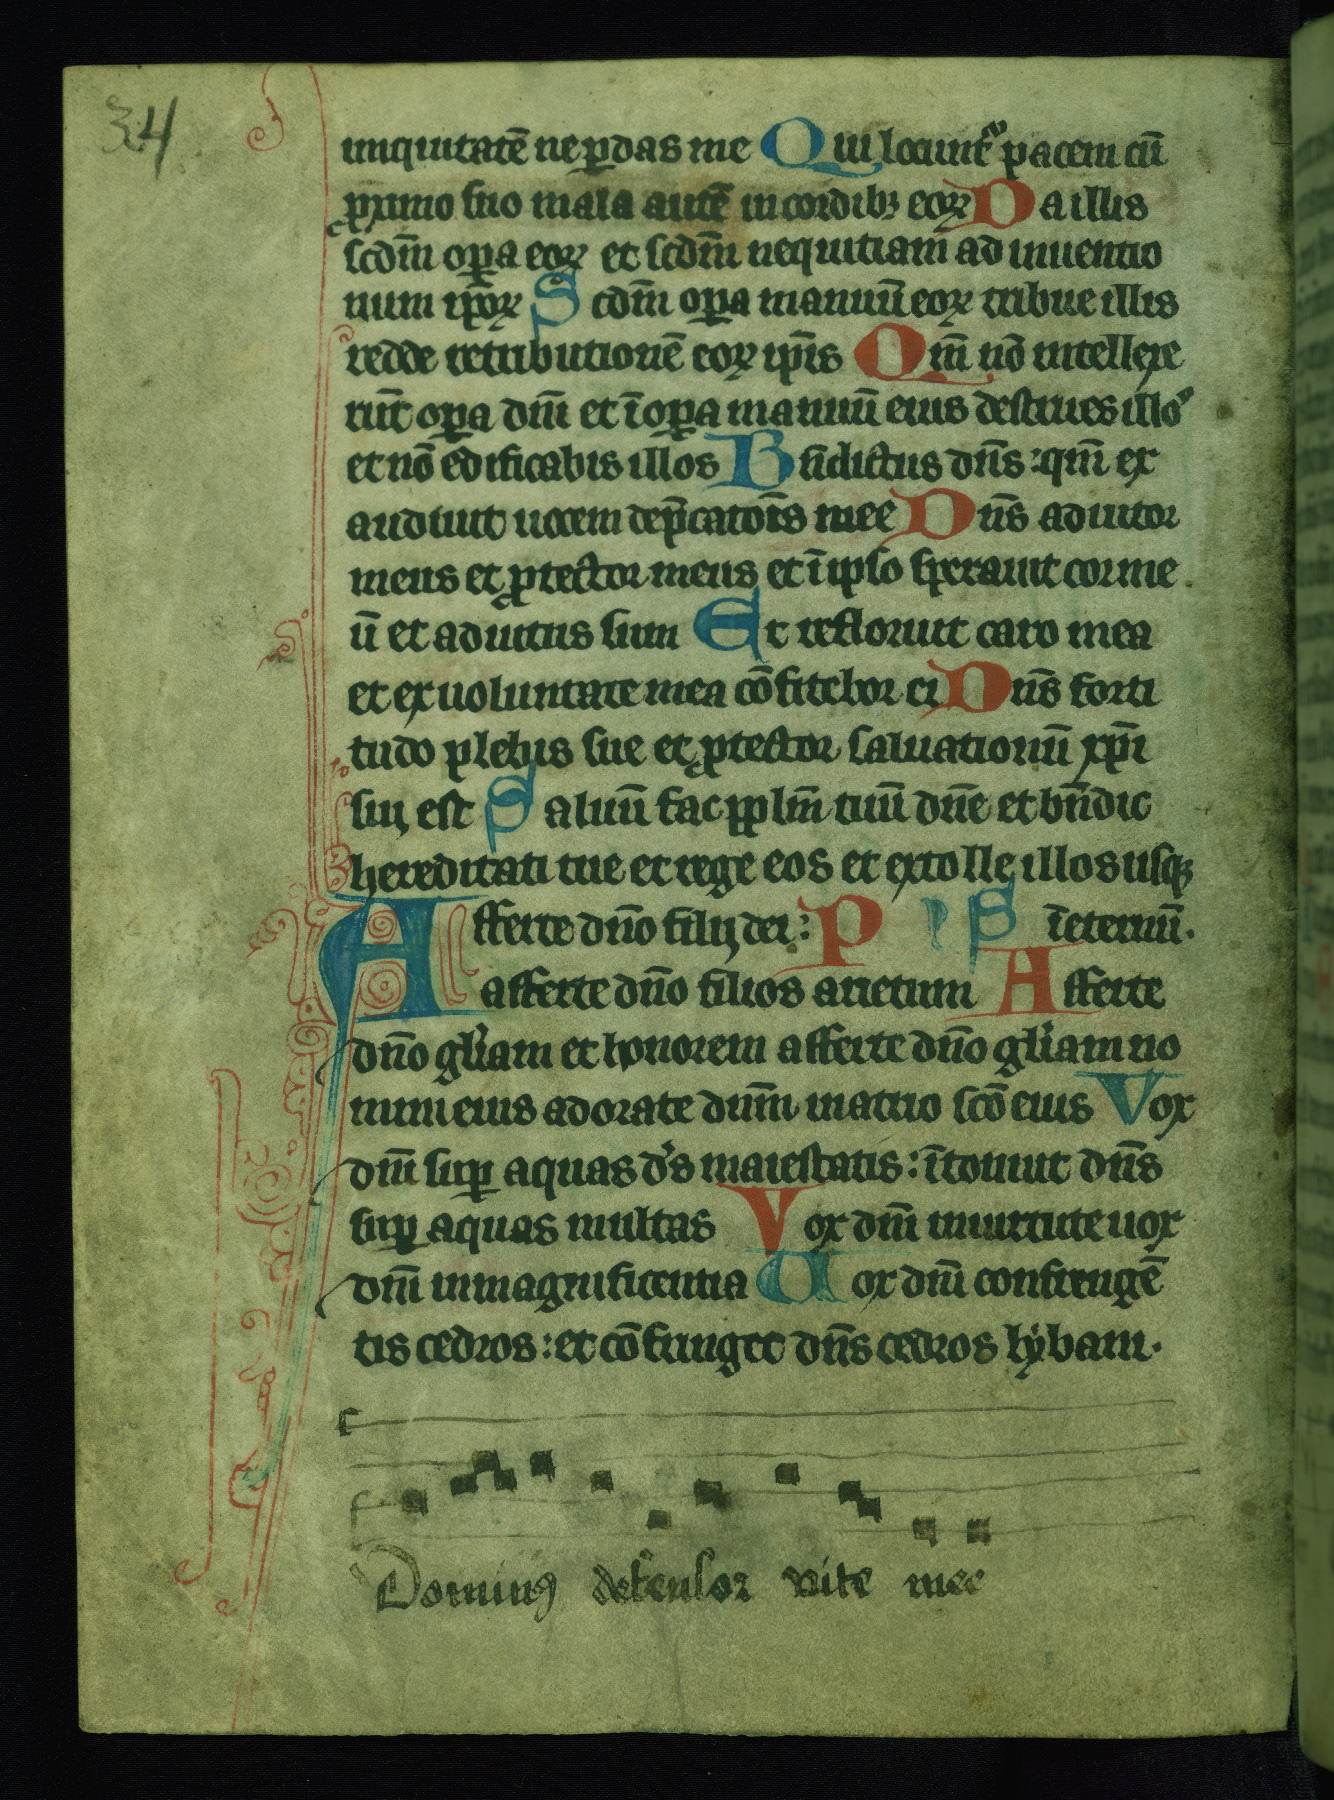 34
iniquitatē ne ꝑdas me Qui locunt᷑ pacem cū
ꝓximo suo mala autē in cordibꝫ eoꝝ Da illis
scdm̄ oꝑa eoꝝ et scdm̄ nequitiam ad inuentio
num ip̄oꝝ Scdm̄ oꝑa manuū eoꝝ tribue illis
redde retributionē eoꝝ ip̄is Qm̄ nō intellexe
rūt oꝑa dm̄i et ī oꝑa manuū eius destrues illoꝰ
et nō edificabis illos Bn̄dictus dn̄s : qm̄ ex
audiuit uocem dep̄catōis mee Dn̄s adiutor
meus et ꝓtector meus et ī ipso sperauit cor me
ū et adiutus sum Et refloruit caro mea
et ex uoluntate mea cōfitebor ei Dn̄s forti
tudo plebis sue et ꝓtector saluationū xp̄i
sui est Saluū fac pplm̄ tuū dn̄e et bn̄dic
hereditati tue et rege eos et extolle illos usqꝫ
Afferte dn̄o filij dei : P S īeternū.
afferte dn̄o filios arietum Afferte
dn̄o gl̄iam et honorem afferte dn̄o gl̄iam no
mini eius adorate dnm̄ in atrio scō eius Vox
dn̄i suꝑ aquas d's maiestatis : ītonuit dn̄s
suꝑ aquas multas Vox dn̄i in uirtute uox
dn̄i in magnificentia Uox dn̄i confringē
tis cedros : et cōfringet dn̄s cedros lybani.
Dominꝰ defensor vite mee